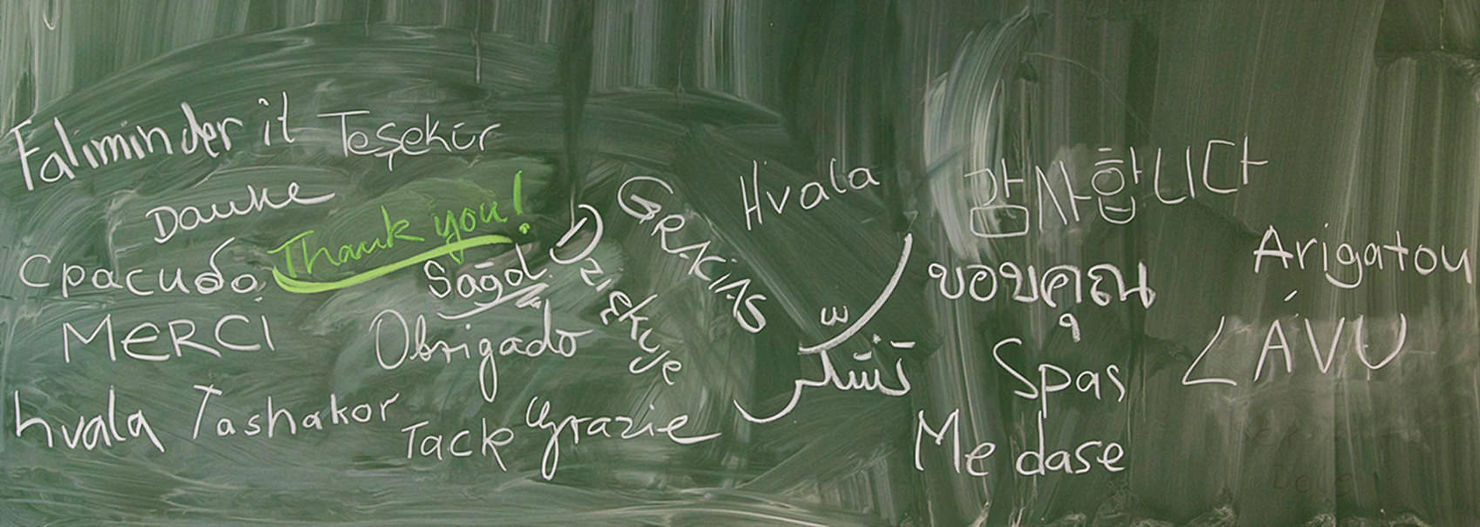 Faliminderit
Teşekür
Danke
Thank you!
Hvala
감사합니다
Спасибо
Sağol
Dziękuje
GRACIAS
ขอบคุณ
Arigatou
MERCI
Obrigado
تشکّر
Spas
LÁVU
hvala
Tashakor
Tack
Grazie
Me dase